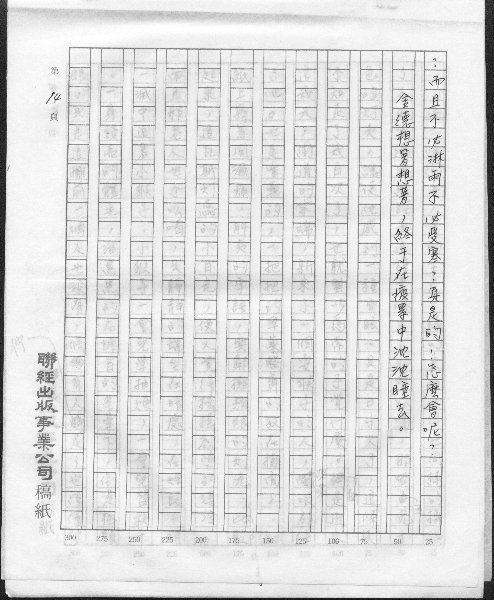 ？而且不必淋雨不必受寒？真是的！怎麼會呢？
金德想著想著，終于在疲累中沈沈睡去。
第14頁
聯經出版事業公司稿紙
300 275 250 225 200 175 150 125 100 75 50 25